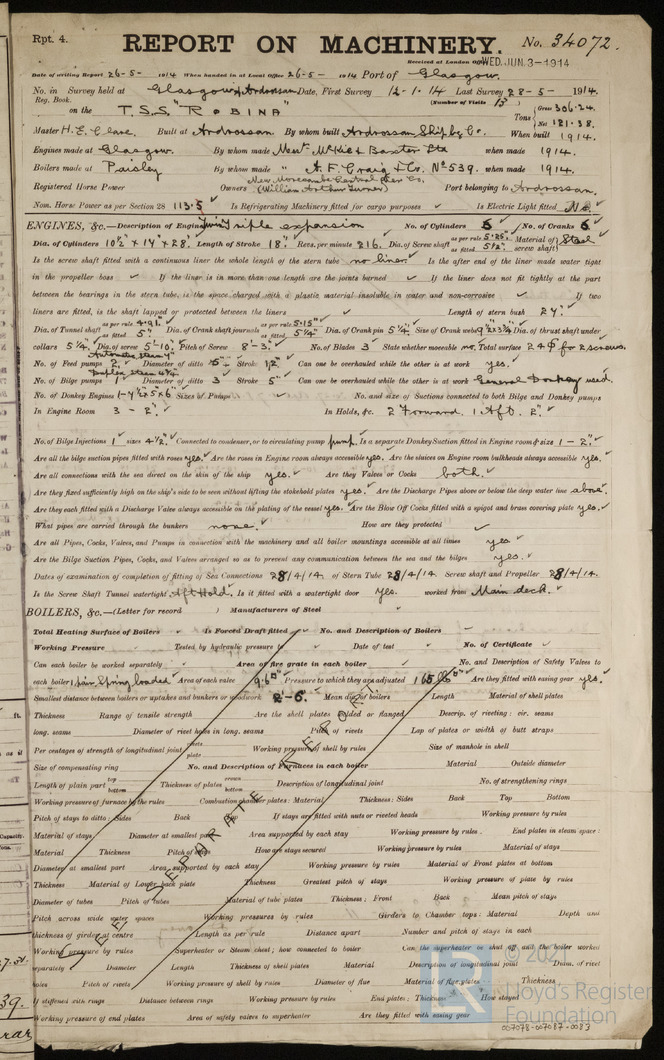 Rpt. 4.
REPORT ON MACHINERY. No. 34072.
Received at London Office WED. JUN. 3-1914
Date of writing Report 26-5- 1914 When handed in at Local Office 26-5- 1914 Port of Glasgow.
No. in Survey held at Glasgow & Ardrossan Date, First Survey 12-1-14 Last Survey 28-5- 1914.
Reg. Book. (Number of Visits 13
on the T.S.S. "ROBINA" Tons Gross 306.24. Net 121.38.
Master H. E. Built at Ardrossan By whom built Ardrossan Shipbg Co. When built 1914.
Engines made at Glasgow. By whom made Messrs McKie & Baxter Ltd when made 1914.
Boilers made at Paisley By whom made " A. F. Craig & Co. No 539. when made 1914.
Registered Horse Power Owners New Morecambe Central Pier Co. (William Arthur Turner) Port belonging to Ardrossan.
Nom. Horse Power as per Section 28 113.5 Is Refrigerating Machinery fitted for cargo purposes ✓ Is Electric Light fitted
ENGINES, &c.—Description of Engines Twin triple expansion No. of Cylinders 6 No. of Cranks 6
Dia. of Cylinders 10½" x 17" x 28" Length of Stroke 18" Revs. per minute 216. Dia. of Screw shaft as per rule 5.25" as fitted 5½" Material of screw shaft Steel
Is the screw shaft fitted with a continuous liner the whole length of the stern tube no liner Is the after end of the liner made water tight
in the propeller boss ✓ If the liner is in more than one length are the joints burned ✓ If the liner does not fit tightly at the part
between the bearings in the stern tube, is the space charged with a plastic material insoluble in water and non-corrosive ✓ If two
liners are fitted, is the shaft lapped or protected between the liners Length of stern bush 24"
Dia. of Tunnel shaft as per rule 4.91" as fitted 5" Dia. of Crank shaft journals as per rule 5.15" as fitted 5¼" Dia. of Crank pin 5¼" Size of Crank webs Dia. of thrust shaft under
collars 5¼" Dia. of screw 5'-10" Pitch of Screw 8'-3" No. of Blades 3 State whether moveable no. Total surface for 2 screws.
No. of Feed pumps 2 Diameter of ditto 5" Stroke 12" Can one be overhauled while the other is at work yes.
No. of Bilge pumps 1 Diameter of ditto 3 Stroke 5" Can one be overhauled while the other is at work General Donkey used.
No. of Donkey Engines Sizes of Pumps No. and size of Suctions connected to both Bilge and Donkey pumps
In Engine Room 3 - 2" In Holds, &c. 2 Forward. 1 Aft. 2"
No. of Bilge Injections 1 sizes 4½" Connected to condenser, or to circulating pump pump. Is a separate Donkey Suction fitted in Engine room & size 1 - 2"
Are all the bilge suction pipes fitted with roses yes. Are the roses in Engine room always accessible yes. Are the sluices on Engine room bulkheads always accessible yes.
Are all connections with the sea direct on the skin of the ship yes. Are they Valves or Cocks both.
Are they fixed sufficiently high on the ship's side to be seen without lifting the stokehold plates yes. Are the Discharge Pipes above or below the deep water line above.
Are they each fitted with a Discharge Valve always accessible on the plating of the vessel yes. Are the Blow Off Cocks fitted with a spigot and brass covering plate yes.
What pipes are carried through the bunkers none. How are they protected ✓
Are all Pipes, Cocks, Valves, and Pumps in connection with the machinery and all boiler mountings accessible at all times yes
Are the Bilge Suction Pipes, Cocks, and Valves arranged so as to prevent any communication between the sea and the bilges yes.
Dates of examination of completion of fitting of Sea Connections 28/4/14. of Stern Tube 28/4/14 Screw shaft and Propeller 28/4/14.
Is the Screw Shaft Tunnel watertight Aft Hold. Is it fitted with a watertight door yes. worked from Main deck.
BOILERS, &c.—(Letter for record ) Manufacturers of Steel
Total Heating Surface of Boilers Is Forced Draft fitted No. and Description of Boilers
Working Pressure Tested by hydraulic pressure to Date of test No. of Certificate
Can each boiler be worked separately Area of fire grate in each boiler No. and Description of Safety Valves to
each boiler 1 pair Spring loaded Area of each valve 9.6" Pressure to which they are adjusted 165 lbs Are they fitted with easing gear yes.
Smallest distance between boilers or uptakes and bunkers or woodwork 2'-6" Mean dia. of boilers Length Material of shell plates
Thickness Range of tensile strength Are the shell plates welded or flanged Descrip. of riveting: cir. seams
long. seams Diameter of rivet holes in long. seams Pitch of rivets Lap of plates or width of butt straps
Per centages of strength of longitudinal joint rivets plate Working pressure of shell by rules Size of manhole in shell
Size of compensating ring No. and Description of Furnaces in each boiler Material Outside diameter
Length of plain part top bottom Thickness of plates crown bottom Description of longitudinal joint No. of strengthening rings
Working pressure of furnace by the rules Combustion chamber plates: Material Thickness: Sides Back Top Bottom
Pitch of stays to ditto: Sides Back Top If stays are fitted with nuts or riveted heads Working pressure by rules
Material of stays Diameter at smallest part Area supported by each stay Working pressure by rules End plates in steam space:
Material Thickness Pitch of stays How are stays secured Working pressure by rules Material of stays
Diameter at smallest part Area supported by each stay Working pressure by rules Material of Front plates at bottom
Thickness Material of Lower back plate Thickness Greatest pitch of stays Working pressure of plate by rules
Diameter of tubes Pitch of tubes Material of tube plates Thickness: Front Back Mean pitch of stays
Pitch across wide water spaces Working pressures by rules Girders to Chamber tops: Material Depth and
thickness of girder at centre Length as per rule Distance apart Number and pitch of stays in each
Working pressure by rules Superheater or Steam chest; how connected to boiler Can the superheater be shut off and the boiler worked
separately Diameter Length Thickness of shell plates Material Description of longitudinal joint Diam. of rivet
holes Pitch of rivets Working pressure of shell by rules Diameter of flue Material of flue plates Thickness
If stiffened with rings Distance between rings Working pressure by rules End plates: Thickness How stayed
Working pressure of end plates Area of safety valves to superheater Are they fitted with easing gear
SEE SEPARATE REPORT
© 2021
Lloyd's Register
Foundation
007078-007087-0083